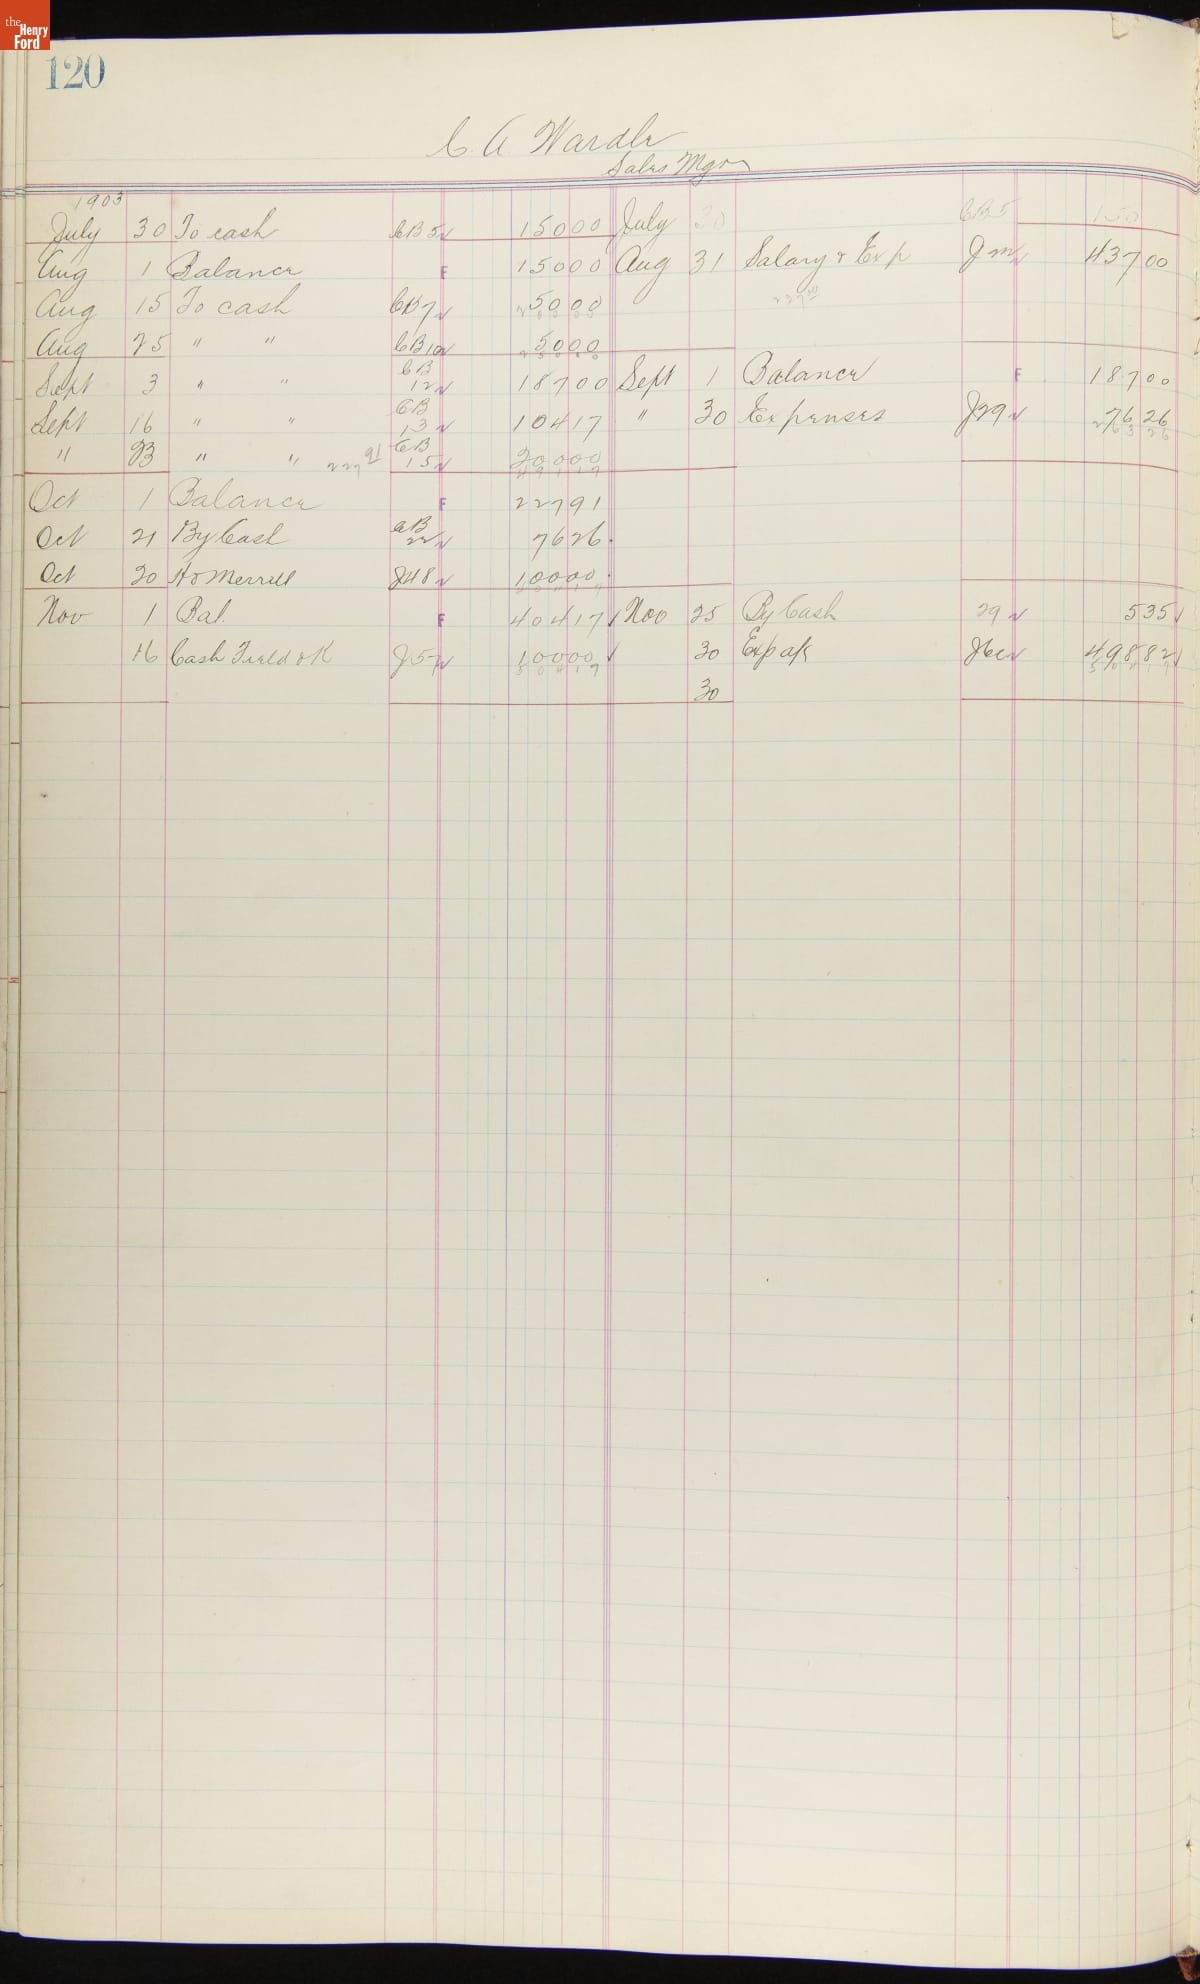 the
Henry
Ford
120
C A Wardle
Sales Mgr
1903
July 30 To cash CB 5 150 00 July 30 CB 5 150
Aug 1 Balance F 150 00 Aug 31 Salary & Exp J 437 00
Aug 15 To cash CB 7 50 00 237 00
Aug 25 " " CB 10 50 00
Sept 3 " " CB 12 187 00 Sept 1 Balance F 187 00
Sept 16 " " CB 13 104 17 " 30 Expenses J29 76 26
" 23 " " 227 91 CB 15 200 00
Oct 1 Balance F 227 91
Oct 21 By Cash CB 22 76 26
Oct 20 Merrill J48 100 00
Nov 1 Bal. F 404 17 Nov 25 By Cash 29 5 35
16 Cash J57 100 00 30 Exp a/c 498 82
30